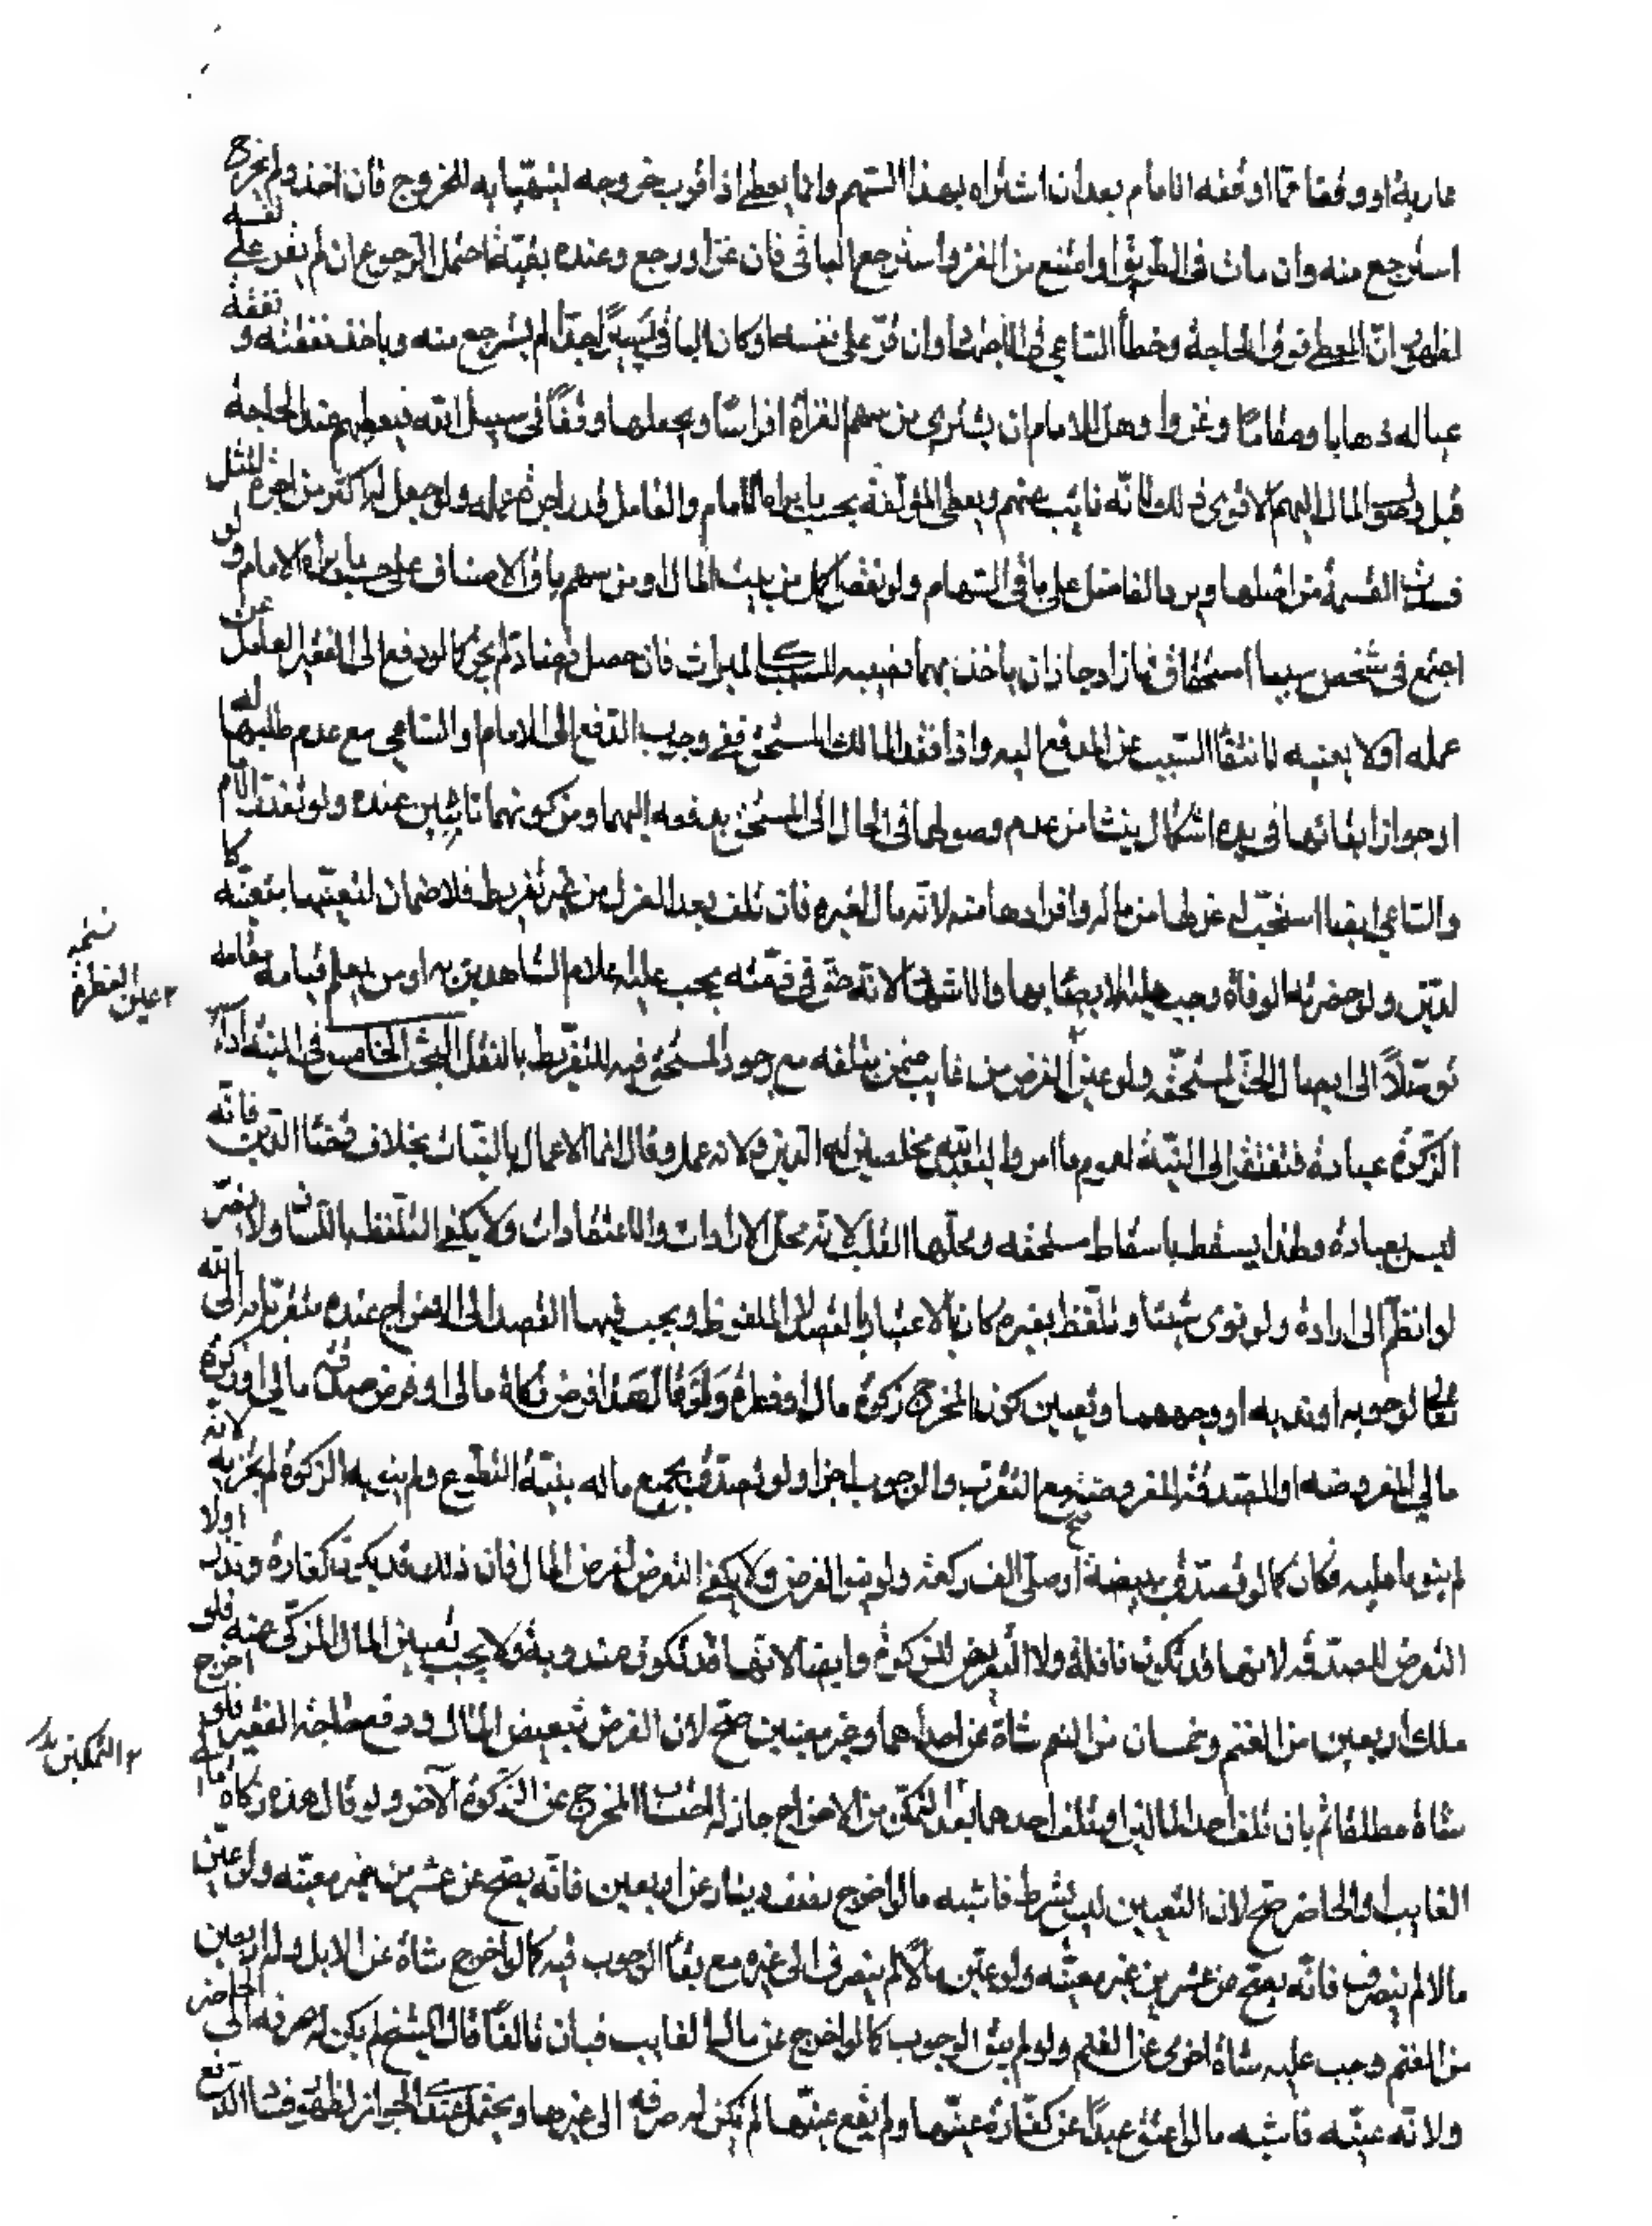 عارية او وقفا مما اوقفه الامام بعد ان اشتراه بهذا السهم وانما يعطى اذا قرب خروجه ليتهيأ به للخروج فان اخذ ولم يخرج
استرجع منه وان مات فى الطريق او امتنع من الغزو استرجع الباقى فان غزا ورجع وعنده بقية احتمل الرجوع ان لم يقتر على نفسه
لظهور ان المعطى فوق الحاجة وخطأ الساعى فى الاجتهاد وان قتر على نفسه او كان الباقى يسيرا لم يسترجع منه وياخذ نفقته و نفقة
عياله ذهابا ومقاما وغزوا وهل للامام ان يشترى من سهم الغزاة افراسا ويجعلها وقفا فى سبيل الله فيعطيهم عند الحاجة
قبل وصول المال اليهم الاقوى ذلك لانه نائب عنهم ويعطى المؤلفة بحسب ما يراه الامام والعامل قدر اجرة عمله ولو جعل له اكثر من اجرة المثل
فسدت القسمة من اصلها ويرد الفاضل على باقى السهام ولو نقص كمل من بيت المال او من سهم باقى الاصناف على حسب ما يراه الامام ولو
اجتمع فى شخص سببا استحقاق فما زاد جاز ان ياخذ بهما نصيبه كالميراث فان حصل لم يجز كما لو دفع الى الفقير العامل عن
عمله اولا بعينه لانتفاء السبب عن المدفع اليه واذا فقد المالك المستحق ففى وجوب الدفع الى الامام او الساعى مع عدم طلبهما له
او جواز ابقائها فى يده اشكال ينشا من عدم وصولها فى الحال الى المستحق بدفعه اليهما ومن كونهما نائبين عنده ولو تعذر الامام
والساعى ايضا استحب له عزلها من ماله وافرادها منه لانه مال لغيره فان تلف بعد العزل من غير تفريط فلا ضمان لتعينها بتعينه كا
لدين ولو حضرته الوفاة وجب عليه الايصاء بها والاشهاد لانه حق فى ذمته يجب عليه اعلام الشاهدين به او من يعلم قيامه مقامه
توصلا الى ايصال الحق لمستحقه ولو عين الفرض من غايب ضمن بتلفه مع وجود المستحق فيه للتفريط بالنقل البحث الخامس فى كيفية الاداء
الزكوة عبادة فتفتقر الى النية لعموم وما امروا الا ليعبدوا الله مخلصين له الدين ولانه عمل وقال انما الاعمال بالنيات بخلاف قضاء الدين فانه
ليس بعبادة ولهذا يسقط باسقاط مستحقه ومحلها القلب لانه محل الارادات والاعتقادات ولا يكفى التلفظ باللسان ولا يضر
لو انظم الى ارادة ولو نوى شيئا وتلفظ بغيره كان الاعتبار بالقصد لا الملفوظ ويجب فيها القصد الى الاخراج عنده متقربا به الى الله
تعالى لوجوبه او ندبه او وجههما وتعيين كون المخرج زكوة مال او فطرة ولو قال هذا فرض زكاة مالى او فرض صدقة مالى او زكوة
مالى المفروضة او الصدقة المفروضة مع التقرب والوجوب اجزا ولو تصدق بجميع ماله بنية التطوع ولم ينو به الزكوة لم يجزيه لانه
لم ينو ما عليه فكان كما لو تصدق ببعضه او صلى الف ركعة ولم ينو الفرض ولا يكفى التعرض لفرض المال فان ذلك قد يكون كفارة ونذرا ولا
التعرض للصدقة لانها قد تكون نافلة ولا التعرض للزكوة وايضا لانها قد تكون مندوبة ولا يجب تعيين المال المزكى عنه فلو
ملك اربعين من الغنم وخمسا من النعم شاة عن احداهما وغير معينين صح لان الفرض تبعيض المال ودفع حاجة الفقير فلو اخرج
شاة مطلقا ثم بان تلف احد المالين او تلف احدهما بعد التمكن من الاخراج جاز له احتساب المخرج عن الزكوة الآخر ولو قال هذه زكاة مالى
الغايب او الحاضر صح لان التعيين ليس بشرط فاشبه ما لو اخرج نصف دينار عن اربعين فانه يصح عن عشرين غير معينه ولو عين
مالا لم ينصرف فانه يصح عن عشرين غير معينه ولو عين مالا لم ينصرف الى غيره مع بقاء الوجوب فيه كما لو اخرج شاة عن الابل وله اربعين
من الغنم وجب عليه شاة اخرى عن الغنم ولو لم يبق الوجوب كما لو اخرج عن ماله الغايب فبان تالفا قال الشيخ لم يكن له صرفه الى الحاضر
ولانه عينه فاشبه ما لو اعتق عبدا عن كفارة عينها ولم يقع عنها لم يكن له صرفه الى غيرها ويحتمل عندى الجواز لظهور فساد الدفع
نسخه
عين الفطرة
التمكين بدل